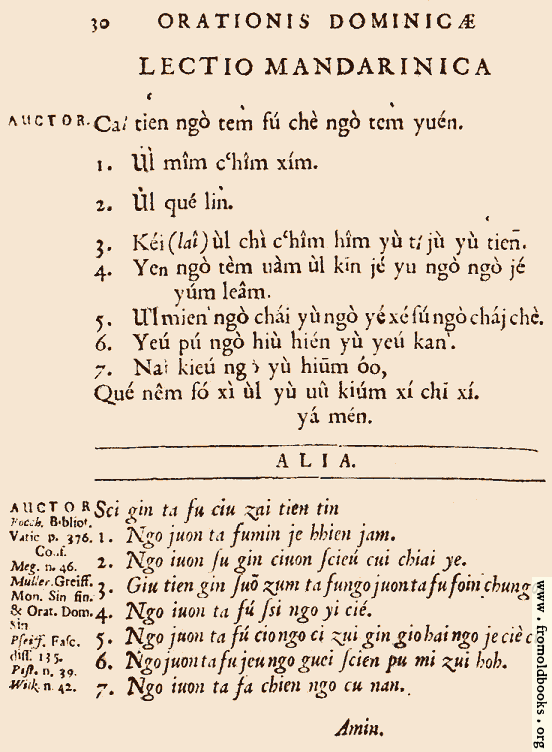 30 ORATIONIS DOMINICÆ
LECTIO MANDARINICA
AUCTOR. Cai tien ngò tem̀ fú chè ngò tem̀ yuén.
1. Ùl mîm c‘hîm xím.
2. Ùl qué liǹ.
3. Kéi (laî) ùl chì c‘hîm hîm yù tí jù yù tien̄.
4. Yen ngò tèm uàm ùl kīn jé yu ngò ngò jé
yúm leâm.
5. Ùl mien ngò chái yù ngò yé xé fú ngò cháj chè.
6. Yeú pú ngò hiù hién yù yeú kan.
7. Nai kieú ngò yù hiūm óo,
Qué nêm fó xì ùl yù uû kiúm xí chī xí.
yá mén.
ALIA.
AUCTOR Sci gin ta fu ciu zai tien tin
Bibliot.
Vatic p. 376. 1. Ngo juon ta fumin je hhien jam.
Conf.
Meg. n. 46. 2. Ngo iuon ſu gin ciuon ſcieú cui chiai ye.
Muller. Greiff. 3. Giu tien gin ſuō zum ta fungo juon ta fu foin chung
Mon. Sin fin.
& Orat. Dom. 4. Ngo iuon ta fú ſsi ngo yi cié.
Sin
Pfeiff. Faſc. 5. Ngo juon ta fú ciongo ci zui gin gio hai ngo je ciè c
diff. 135. 6. Ngo juon ta fu jeu ngo guei ſcien pu mi zui hoh.
Piſt. n. 39.
Wilk. n. 42. 7. Ngo iuon ta fa chien ngo cu nan.
Amin.
www.fromoldbooks.org